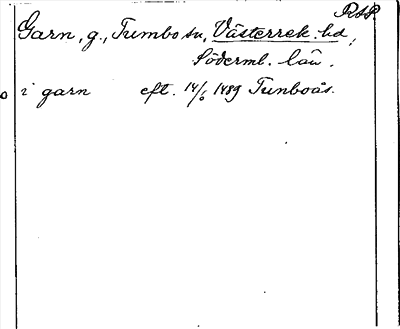 RAP
Garn, g., Tumbo sn, Västerrek. hd,
Söderml. län.
i garn eft. 14/6 1489 Tunboås.